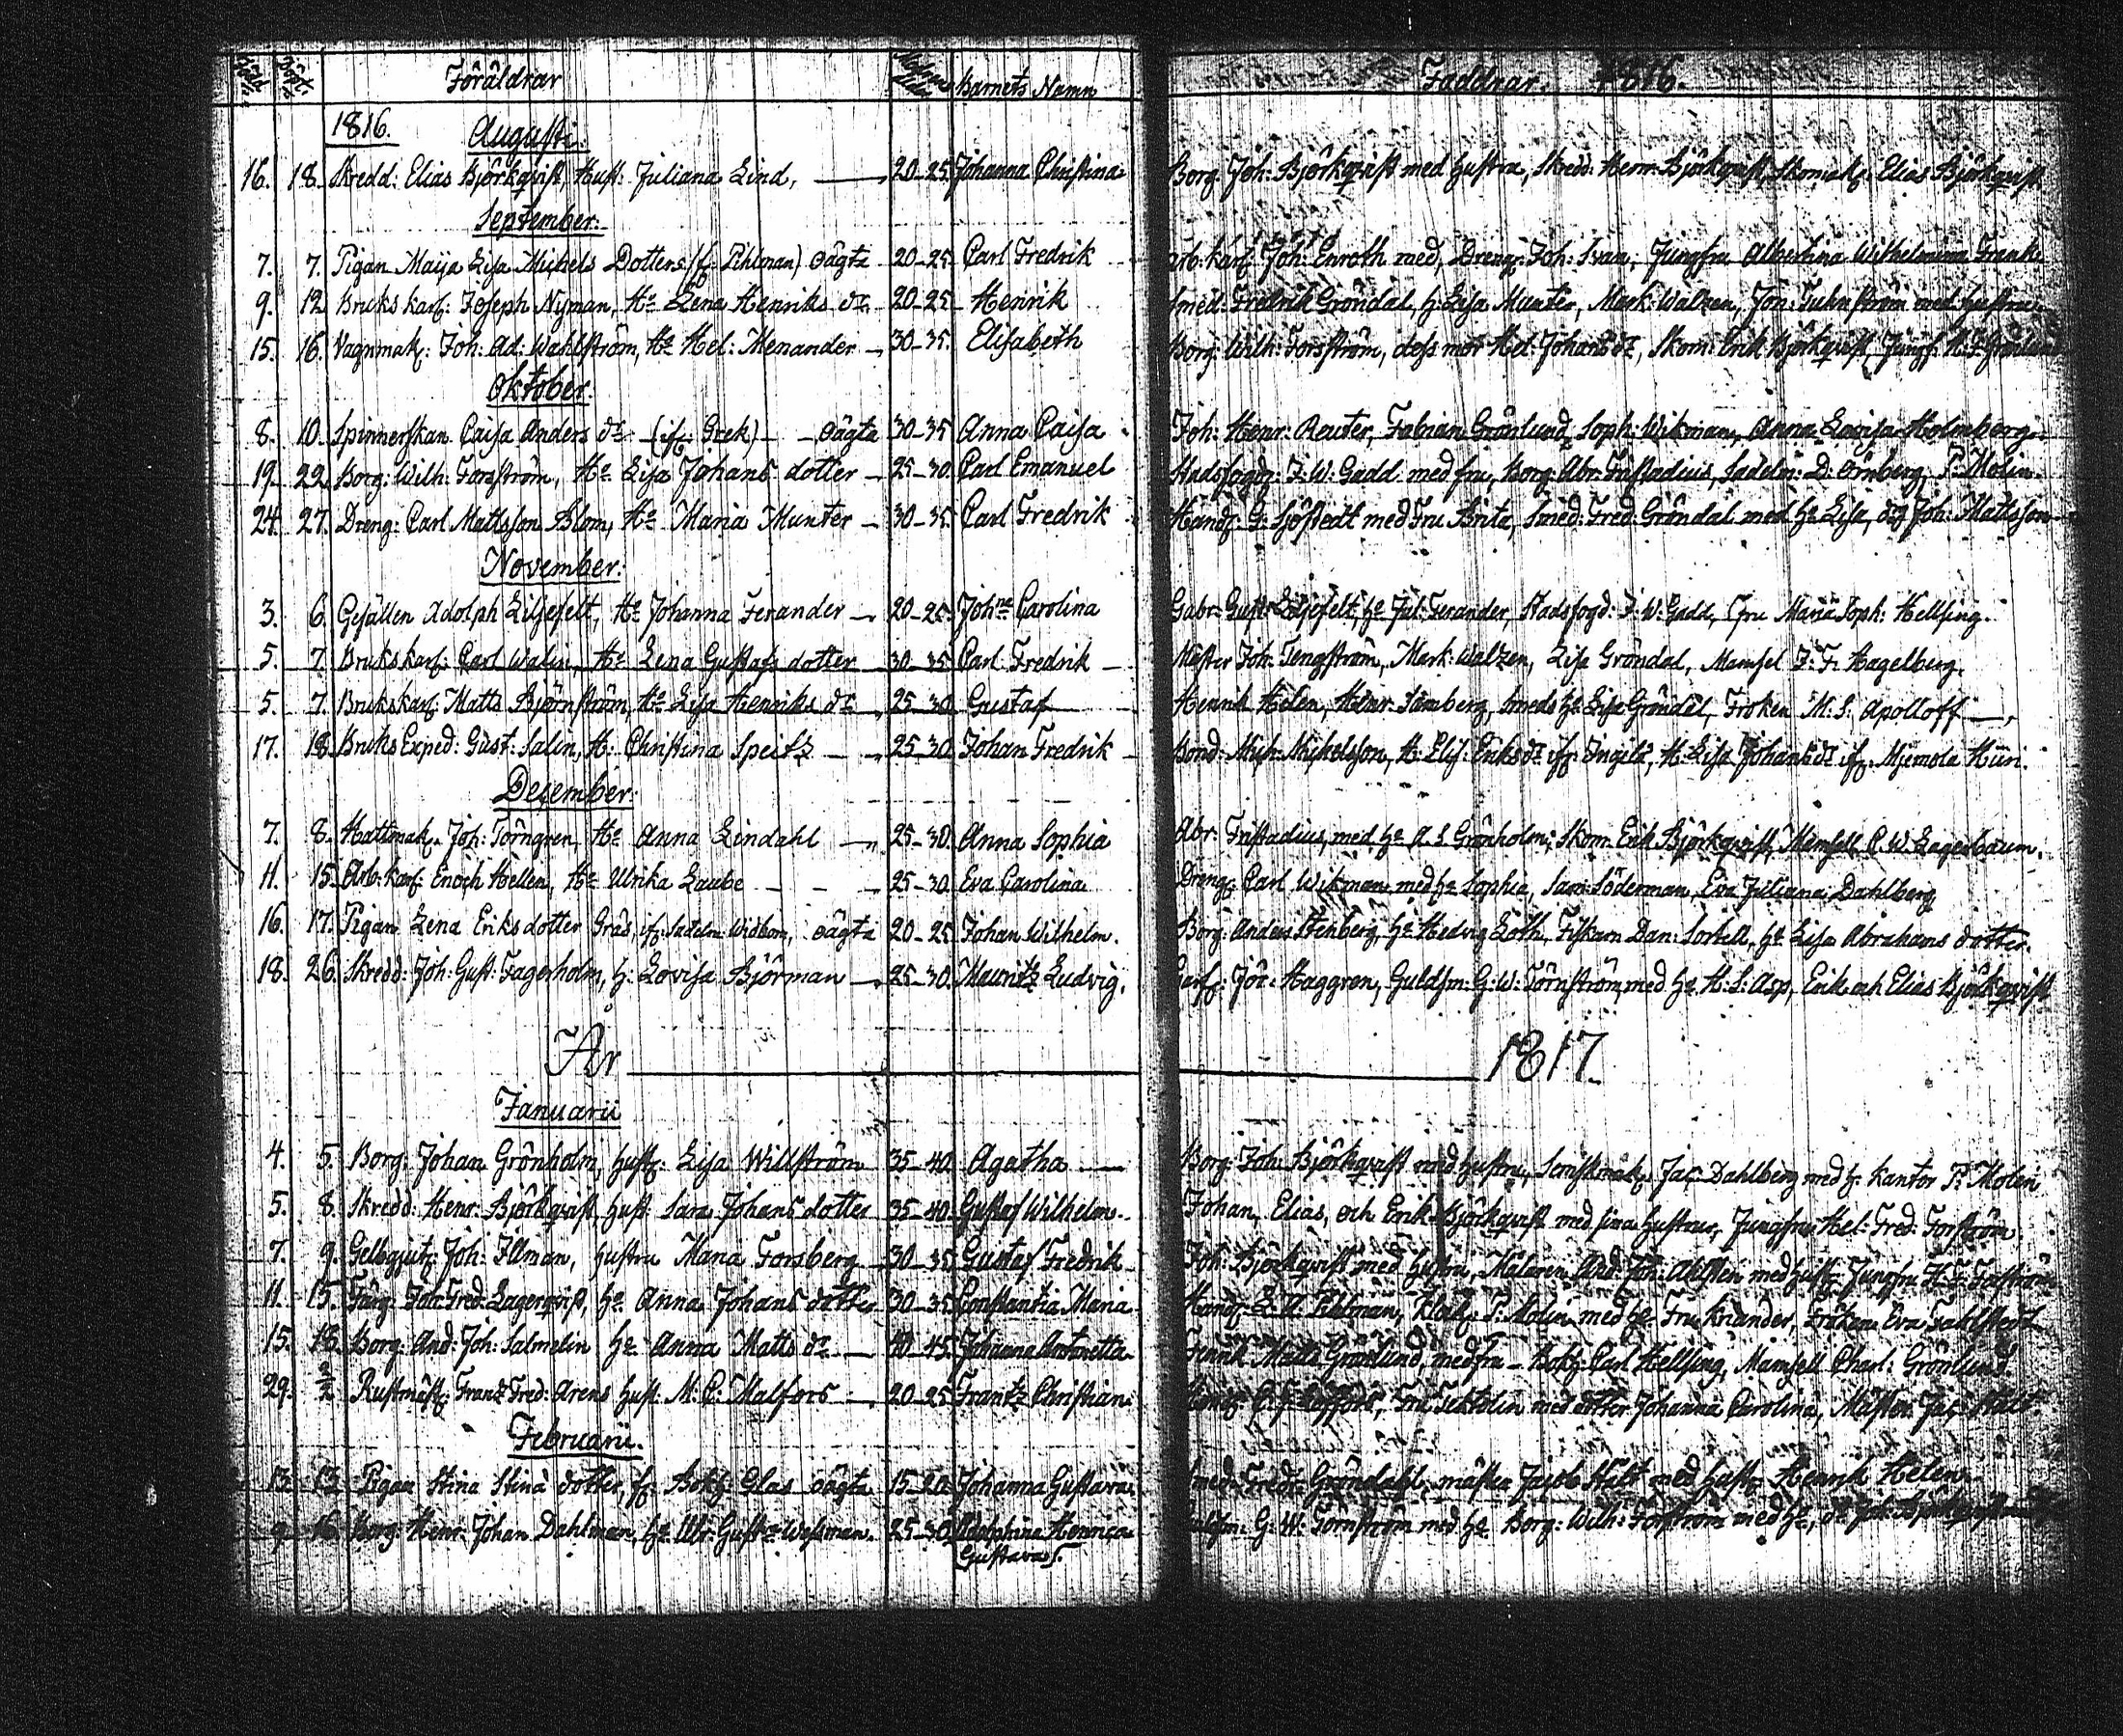 Född Döpt Föräldrar Barnets Namn Faddrar. 1816.
1816. Augusti.
16. 18. Skredd: Elias Björkqvist, Hust: Juliana Lind, 20-25 Johanna Christina Borg. Joh: Björkqvist med hustru, Skredd: Henr: Björkqvist, Skomak: Elias Björkqvist
September.
7. 7. Pigan Maija Lisa Michels Dotter (f. Pihlman) oägta 20-25 Carl Fredrik arb: karl: Joh: Enroth med, Dreng: Joh: Ivan, Jungfru Albertina Wilhelmina Frank
9. 12 Bruks karl: Joseph Nyman, Ha Lena Henriks dr 20-25 Henrik smed: Fredrik Gröndal, h: Lisa Munter, Mark: Walzen, Jon: med hustru
15. 16. Vagnmak: Joh: Ad: Wahlström, Ha Hel: Menander 30-35. Elisabeth Borg: Wilh: Forsström, dess mor Hel: Johans dr, Skom: Erik Björkqvist, Jungf:
Oktober.
8. 10. Spinnerskan Caisa Anders dr (if: Grek) oägta 30-35 Anna Caisa Joh: Henr: Reuter, Fabian Grönlund, Soph: Wikman, Anna Lovisa Holmberg.
19. 22. Borg: Wilh: Forsström, Ha Lisa Johans dotter 25-30. Carl Emanuel Stadsfogd: F. W. Gadd med fru, Borg: Abr: Fristadius, Sadelm: D: Örnberg, P: Molin.
24. 27. Dreng: Carl Mattsson Blom, Ha Maria Munter 30-35. Carl Fredrik Handl: G: Sjöstedt med Fru Brita, Smed: Fred: Gröndal med ha Lisa, Joh: Mattsson
November.
3. 6. Gesällen Adolph Liljefelt, Ha Johanna Ferander 20-25. Johna Carolina Gabr: Gust: Liljefelt, ha Jul: Ferander, Stadsfogd: F. W: Gadd, Fru Maria Soph: Hellsing.
5. 7. Brukskarl: Carl Walin, Ha Lena Gustafs dotter 30-35 Carl Fredrik Mäster Joh: Tengström, Mark: Walzen, Lisa Gröndal, Mamsel F: F: Hagelberg.
5. 7. Brukskarl: Matts Björnström, Ha Lisa Henriks dr 25-30. Gustaf Henrik Helen, Henr: Tamberg, smeds ha Lisa Gröndal, Fröken M: S: Apolloff
17. 18. Bruks Exped: Gust: Salin, H: Christina Speitz 25-30. Johan Fredrik Bond: Mich: Michelsson, H: Elis: Eriks dr if: Ingilä, H: Lisa Johans dr if: Mjemola Huri.
December.
7. 8. Hattmak. Joh: Törngren, Ha Anna Lindahl 25-30. Anna Sophia Abr: Fristadius, med ha A. S. Grönholm; Skom: Erik Björkqvist, Mamsell C. W. Lagerbaum.
11. 15. Arb: karl: Enoch Hellen, Ha Ulrika Laube 25-30. Eva Carolina Dreng: Carl Wikman med ha Sophia, Sam: Söderman, Eva Juliana Dahlberg
16. 17. Pigan Lena Eriksdotter Gräs, if: Sadelm: Widbom, oägta 20-25 Johan Wilhelm. Borg: Anders Stenberg, ha Hedvig Loth, Fiskarn Dan: Sortell, ha Lisa Abrahams dotter.
18. 26. Skredd: Joh: Gust: Fagerholm, h: Lovisa Björman 25-30. Mauritz Ludvig. Joh: Haggren, Guldsm: G: W: Törnström med ha H: S: Asp, Erik och Elias Björkqvist
År 1817.
Januarii
4. 5. Borg: Johan Grönholm, hust: Lisa Willström 35-40. Agatha Borg: Joh: Björkqvist med hustru, Jac: Dahlberg med h: Kantor P: Molin
5. 8. Skredd: Henr: Björkqvist, hust: Sara Johans dotter 35-40. Gustaf Wilhelm. Johan, Elias, och Erik Björkqvist med sina hustrur, Jungfru Hel: Fred: Forsström.
7. 9. Gelbgjut: Joh: Illman, hustru Maria Forsberg 30-35. Gustaf Fredrik Joh: Björkqvist med hustru, Målaren And: Joh: Ahlsten med hust: Jungfru H: F: Forsström
11. 15. Färg: Joh: Fred: Lagerqvist, ha Anna Johans dotter 30-35. Constantia Maria Handl: L: A: Pihlman, Klock: P: Molin med ha Fru Kriander, Fröken Eva Fahlstedt
15. 18. Borg: And: Joh: Salmelin ha Anna Matts dr 40-45. Johanna Antonetta Matts Grönlund med fru - Bokh: Carl Hellsing, Mamsell Charl: Grönlund
29. 2/2 Rustmäst: Frantz Fred: Arens hust: M: C: Malfors 20-25 Frantz Christian med dotter Johanna Carolina, Mäster Jac: Stält
Februarii.
13. 13. Pigan Stina Stina dotter, f: Bokh: Glas oägta 15-20. Johanna Gustava. smed: Fredr: Gröndahl mäster Jacob Stält med hustr: Henrik Helen.
9 16 Borg: Henr: Johan Dahlman, ha Ulr: Gustva Wessman. 25-30. Adolphina Henrica G: W: Törnström med ha Borg: Wilh: Forsström med ha,
Gustava